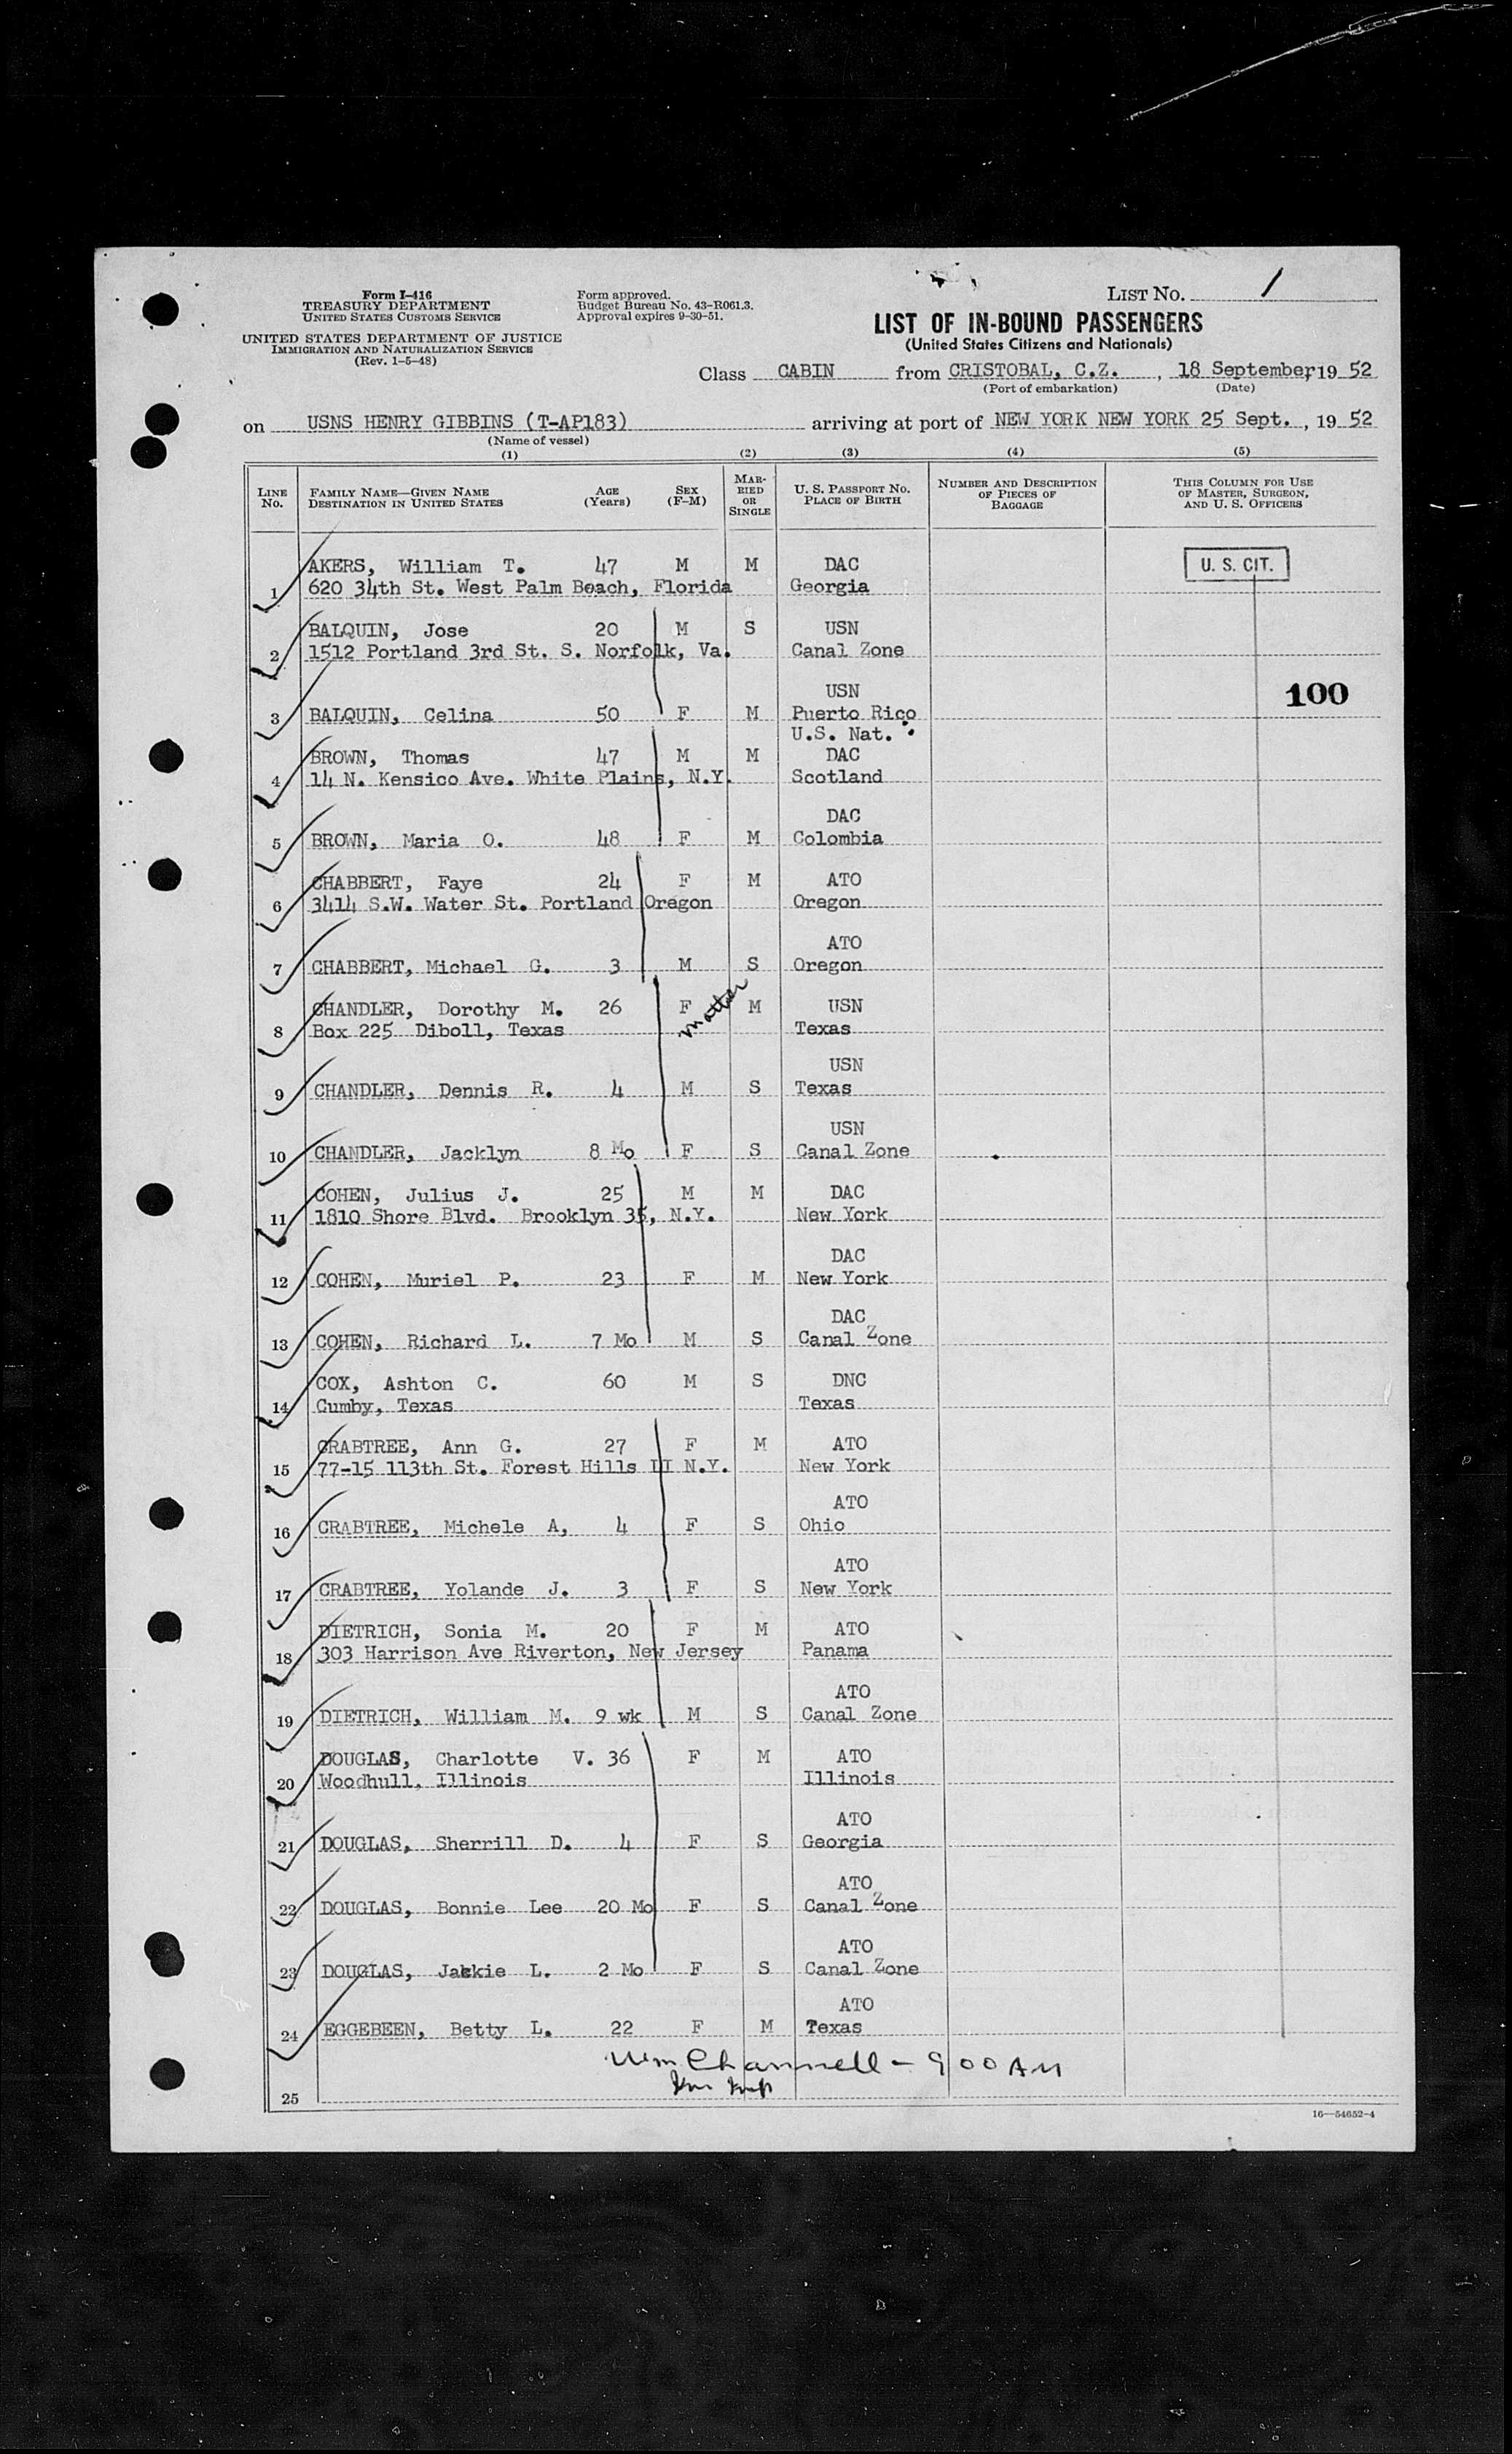 Form I-416
TREASURY DEPARTMENT
UNITED STATES CUSTOMS SERVICE
UNITED STATES DEPARTMENT OF JUSTICE
IMMIGRATION AND NATURALIZATION SERVICE
(Rev. 1-5-48)
Form approved.
Budget Bureau No. 43-R061.3.
Approval expires 9-30-51.
LIST NO. 1
LIST OF IN-BOUND PASSENGERS
(United States Citizens and Nationals)
Class CABIN from CRISTOBAL, C.Z. , 18 September, 19 52
(Port of embarkation) (Date)
on USNS HENRY GIBBINS (T-AP183) arriving at port of NEW YORK NEW YORK 25 Sept. , 19 52
(Name of vessel)
(1) (2) (3) (4) (5)
LINE NO. FAMILY NAME—GIVEN NAME DESTINATION IN UNITED STATES AGE (YEARS) SEX (F-M) MARRIED OR SINGLE U. S. PASSPORT NO. PLACE OF BIRTH NUMBER AND DESCRIPTION OF PIECES OF BAGGAGE THIS COLUMN FOR USE OF MASTER, SURGEON, AND U. S. OFFICERS
AKERS, William T. 47 M M DAC U. S. CIT.
1 620 34th St. West Palm Beach, Florida Georgia
BALQUIN, Jose 20 M S USN
2 1512 Portland 3rd St. S. Norfolk, Va. Canal Zone
USN 100
3 BALQUIN, Celina 50 F M Puerto Rico
U.S. Nat.
BROWN, Thomas 47 M M DAC
4 14 N. Kensico Ave. White Plains, N.Y. Scotland
DAC
5 BROWN, Maria O. 48 F M Colombia
CHABBERT, Faye 24 F M ATO
6 3414 S.W. Water St. Portland Oregon Oregon
ATO
7 CHABBERT, Michael G. 3 M S Oregon
CHANDLER, Dorothy M. 26 F M USN
8 Box 225 Diboll, Texas Texas
USN
9 CHANDLER, Dennis R. 4 M S Texas
USN
10 CHANDLER, Jacklyn 8 Mo F S Canal Zone
COHEN, Julius J. 25 M M DAC
11 1810 Shore Blvd. Brooklyn 35, N.Y. New York
DAC
12 COHEN, Muriel P. 23 F M New York
DAC
13 COHEN, Richard L. 7 Mo M S Canal Zone
COX, Ashton C. 60 M S DNC
14 Cumby, Texas Texas
CRABTREE, Ann G. 27 F M ATO
15 77-15 113th St. Forest Hills LI N.Y. New York
ATO
16 CRABTREE, Michele A, 4 F S Ohio
ATO
17 CRABTREE, Yolande J. 3 F S New York
DIETRICH, Sonia M. 20 F M ATO
18 303 Harrison Ave Riverton, New Jersey Panama
ATO
19 DIETRICH, William M. 9 wk M S Canal Zone
DOUGLAS, Charlotte V. 36 F M ATO
20 Woodhull, Illinois Illinois
ATO
21 DOUGLAS, Sherrill D. 4 F S Georgia
ATO
22 DOUGLAS, Bonnie Lee 20 Mo F S Canal Zone
ATO
23 DOUGLAS, Jackie L. 2 Mo F S Canal Zone
ATO
24 EGGEBEEN, Betty L. 22 F M Texas
Wm Channell - 900 AM
25
16—54652-4